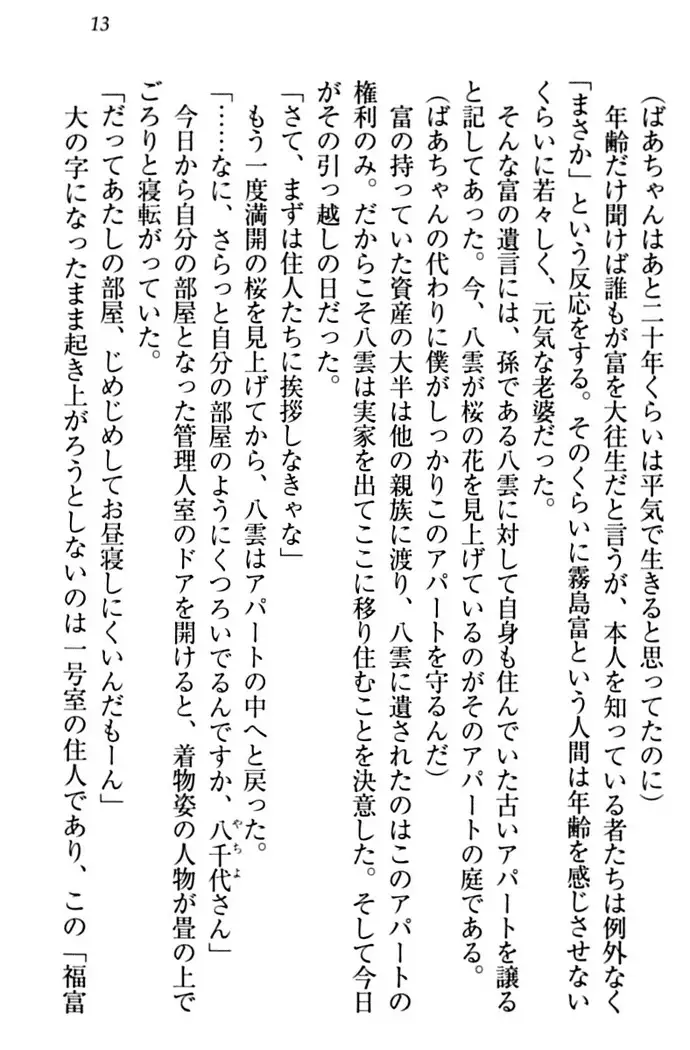 13
(ばあちゃんはあと二十年くらいは平気で生きると思ってたのに)
年齢だけ聞けば誰もが富を大往生だと言うが、本人を知っている者たちは例外なく
「まさか」という反応をする。そのくらいに霧島富という人間は年齢を感じさせない
くらいに若々しく、元気な老婆だった。
そんな富の遺言には、孫である八雲に対して自身も住んでいた古いアパートを譲る
と記してあった。今、八雲が桜の花を見上げているのがそのアパートの庭である。
(ばあちゃんの代わりに僕がしっかりこのアパートを守るんだ)
富の持っていた資産の大半は他の親族に渡り、八雲に遺されたのはこのアパートの
権利のみ。だからこそ八雲は実家を出てここに移り住むことを決意した。そして今日
がその引っ越しの日だった。
「さて、まずは住人たちに挨拶しなきゃな」
もう一度満開の桜を見上げてから、八雲はアパートの中へと戻った。
「……なに、さらっと自分の部屋のようにくつろいでるんですか、八千代さん」
やちよ
今日から自分の部屋となった管理人室のドアを開けると、着物姿の人物が畳の上で
ごろりと寝転がっていた。
「だってあたしの部屋、じめじめしてお昼寝しにくいんだもーん」
大の字になったまま起き上がろうとしないのは一号室の住人であり、この「福富